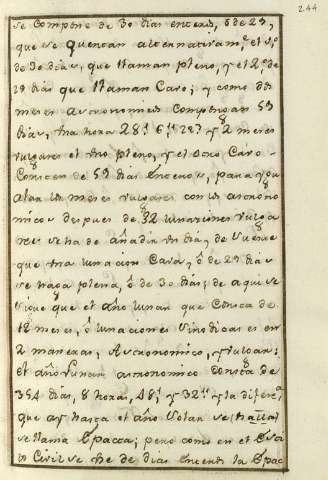 244
se Compone de 30 dias enteros, ó de 29,
que se quentan alternativam.te el 1.o
de 30 dias, que llaman pleno, y el 2.o de
29 dias que llaman Cavo; y como dos
meses Astronomicos componen 59
dias, una hora 28' 6'' 28''' y 2 meses
vulgares el uno pleno, y el otro Cavo
Consten de 59 dias enteros, para ygu
alar los meses vulgares con los astrono
micos despues de 32 lunaciones vulga
res se ha de añadir un dia, de suerte
que una lunacion Cava, ó de 29 dias
se haga plena, ó de 30 dias; de aqui se
sigue que el año lunar que Consta de
12 meses, ó lunaciones sino dicas es en
2 maneras, Astronomico, y vulgar:
el año Lunar astronomico Consta de
354 dias, 8 horas, 48' y 32'' y la diferen.a
que ay hasta el año Solar se (halla)
se llama Epacta; pero como en el Usso
Civil se de dias enteros la Epac